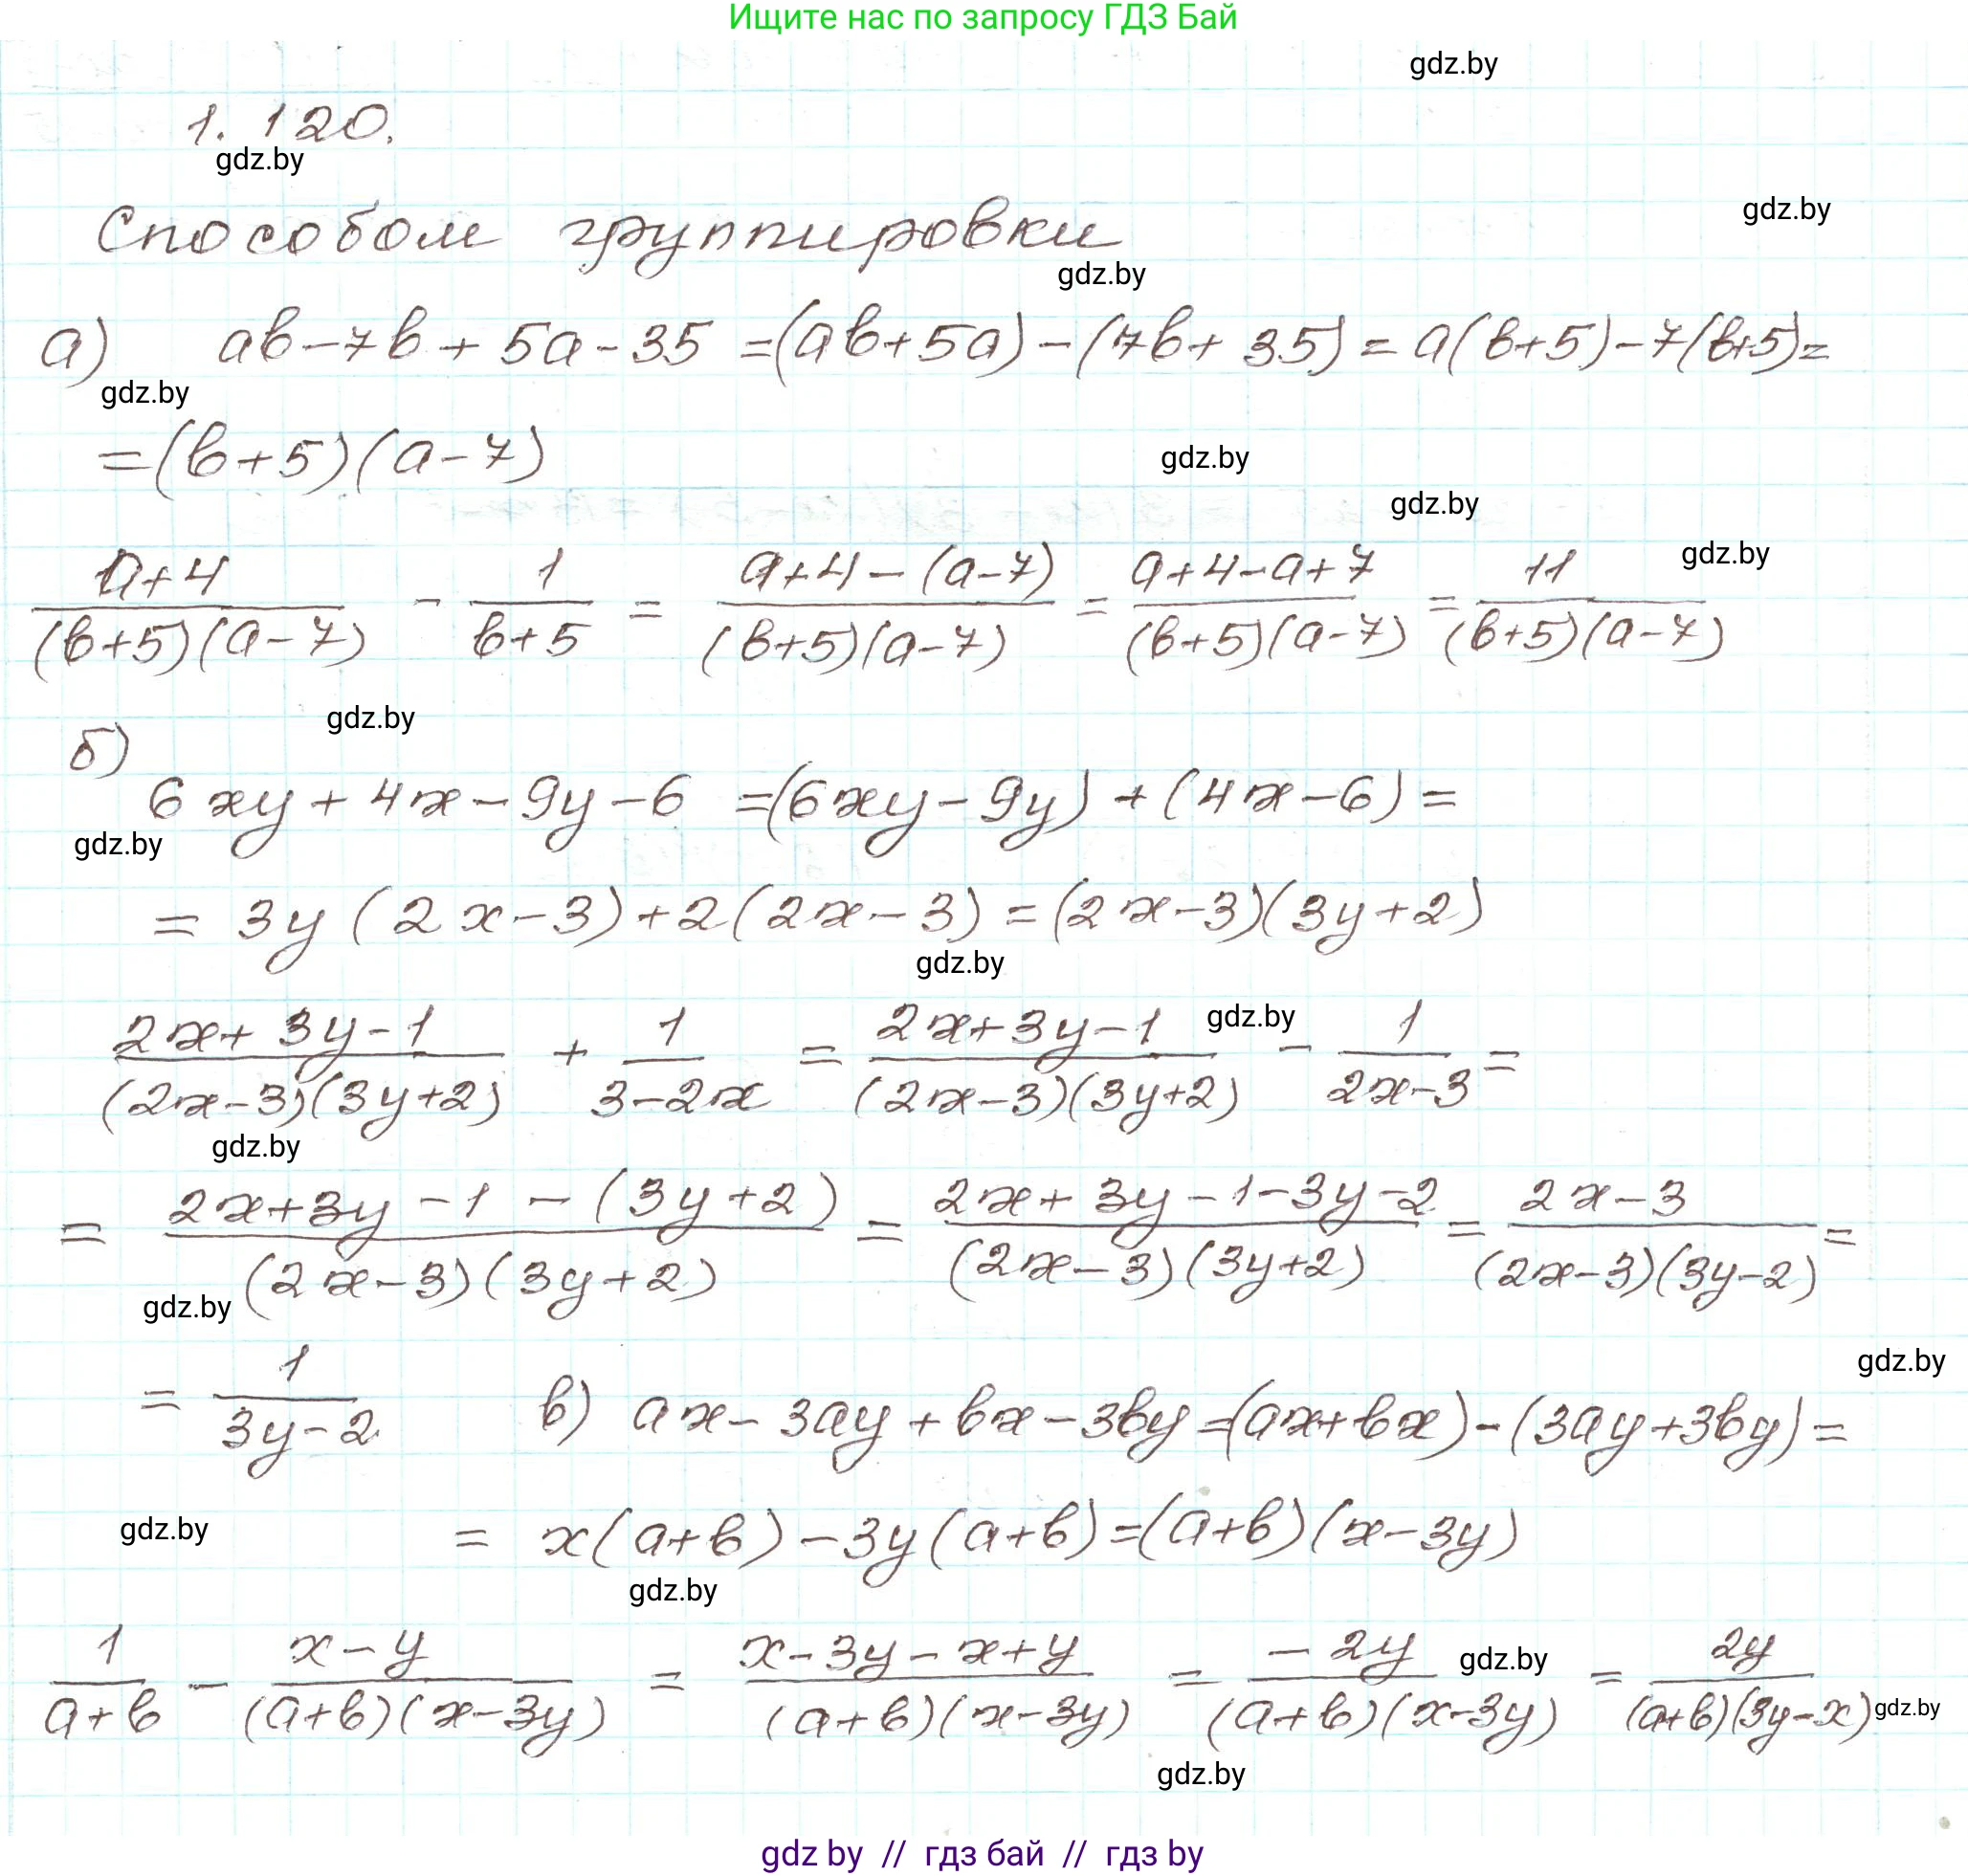 Ищите нас по запросу ГДЗ Бай
gdz.by
1. 120.
gdz.by
Способом группировки
gdz.by
gdz.by
а) ab-7b+5a-35=(ab+5a)-(7b+35)=a(b+5)-7(b+5)=
gdz.by
=(b+5)(a-7)
gdz.by
gdz.by
gdz.by
(a+4)/((b+5)(a-7)) - 1/(b+5) = (a+4-(a-7))/((b+5)(a-7)) = (a+4-a+7)/((b+5)(a-7)) = 11/((b+5)(a-7))
gdz.by
б)
6xy+4x-9y-6=(6xy-9y)+(4x-6)=
gdz.by
=3y(2x-3)+2(2x-3)=(2x-3)(3y+2)
gdz.by
gdz.by
(2x+3y-1)/((2x-3)(3y+2)) + 1/(3-2x) = (2x+3y-1)/((2x-3)(3y+2)) - 1/(2x-3) =
gdz.by
= (2x+3y-1-(3y+2))/((2x-3)(3y+2)) = (2x+3y-1-3y-2)/((2x-3)(3y+2)) = (2x-3)/((2x-3)(3y-2)) =
gdz.by
gdz.by
= 1/(3y-2) в) ax-3ay+bx-3by=(ax+bx)-(3ay+3by)=
gdz.by
=x(a+b)-3y(a+b)=(a+b)(x-3y)
gdz.by
1/(a+b) - (x-y)/((a+b)(x-3y)) = (x-3y-x+y)/((a+b)(x-3y)) = (-2y)/((a+b)(x-3y)) = 2y/((a+b)(3y-x))
gdz.by
gdz.by
gdz.by
gdz by // гдз бай // гдз by